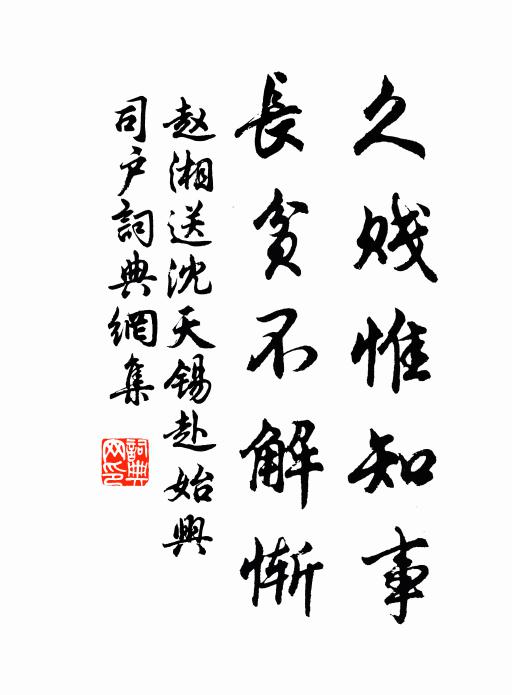 久賤惟知事
長貧不解慚
赵湘送沈天锡赴始興
司户詞典網集
詞典网印